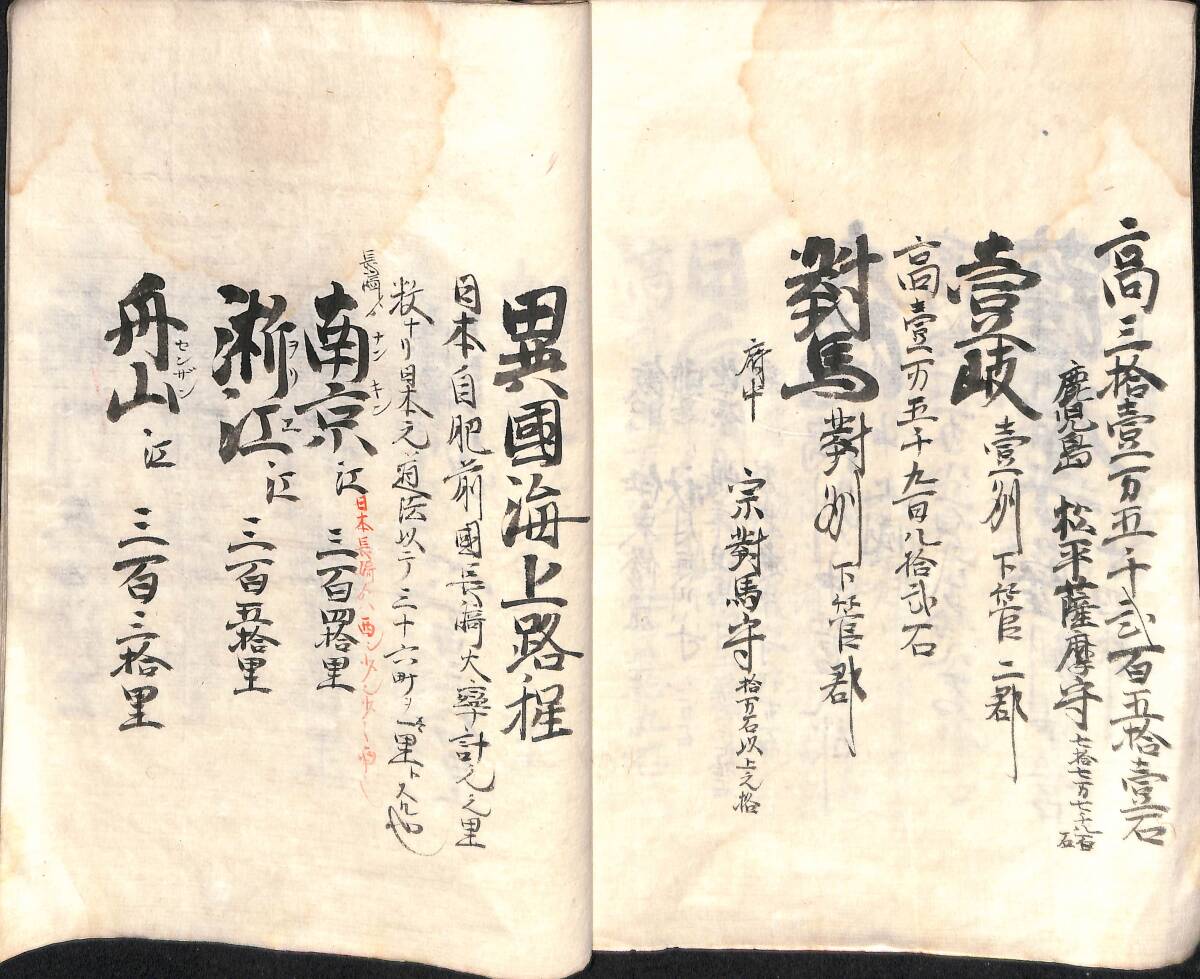 高三拾壹万五千弐百五拾壹石
鹿児島 松平薩摩守 七拾七万七千八百石
壹岐 壹刕 下管 二郡
高壹万五千九百八拾弐石
對馬 對州 下管 郡
府中 宗對馬守 拾万石以上之格
異國海上路程
日本自肥前國長崎大寧計之里
数ナリ日本之道法以テ三十六町ヲ一里ト
長崎ゟ
南京江 三百四拾里
ナンキン
日本長崎ゟハ西
淅江江 三百五拾里
舟山江 三百三拾里
センザン